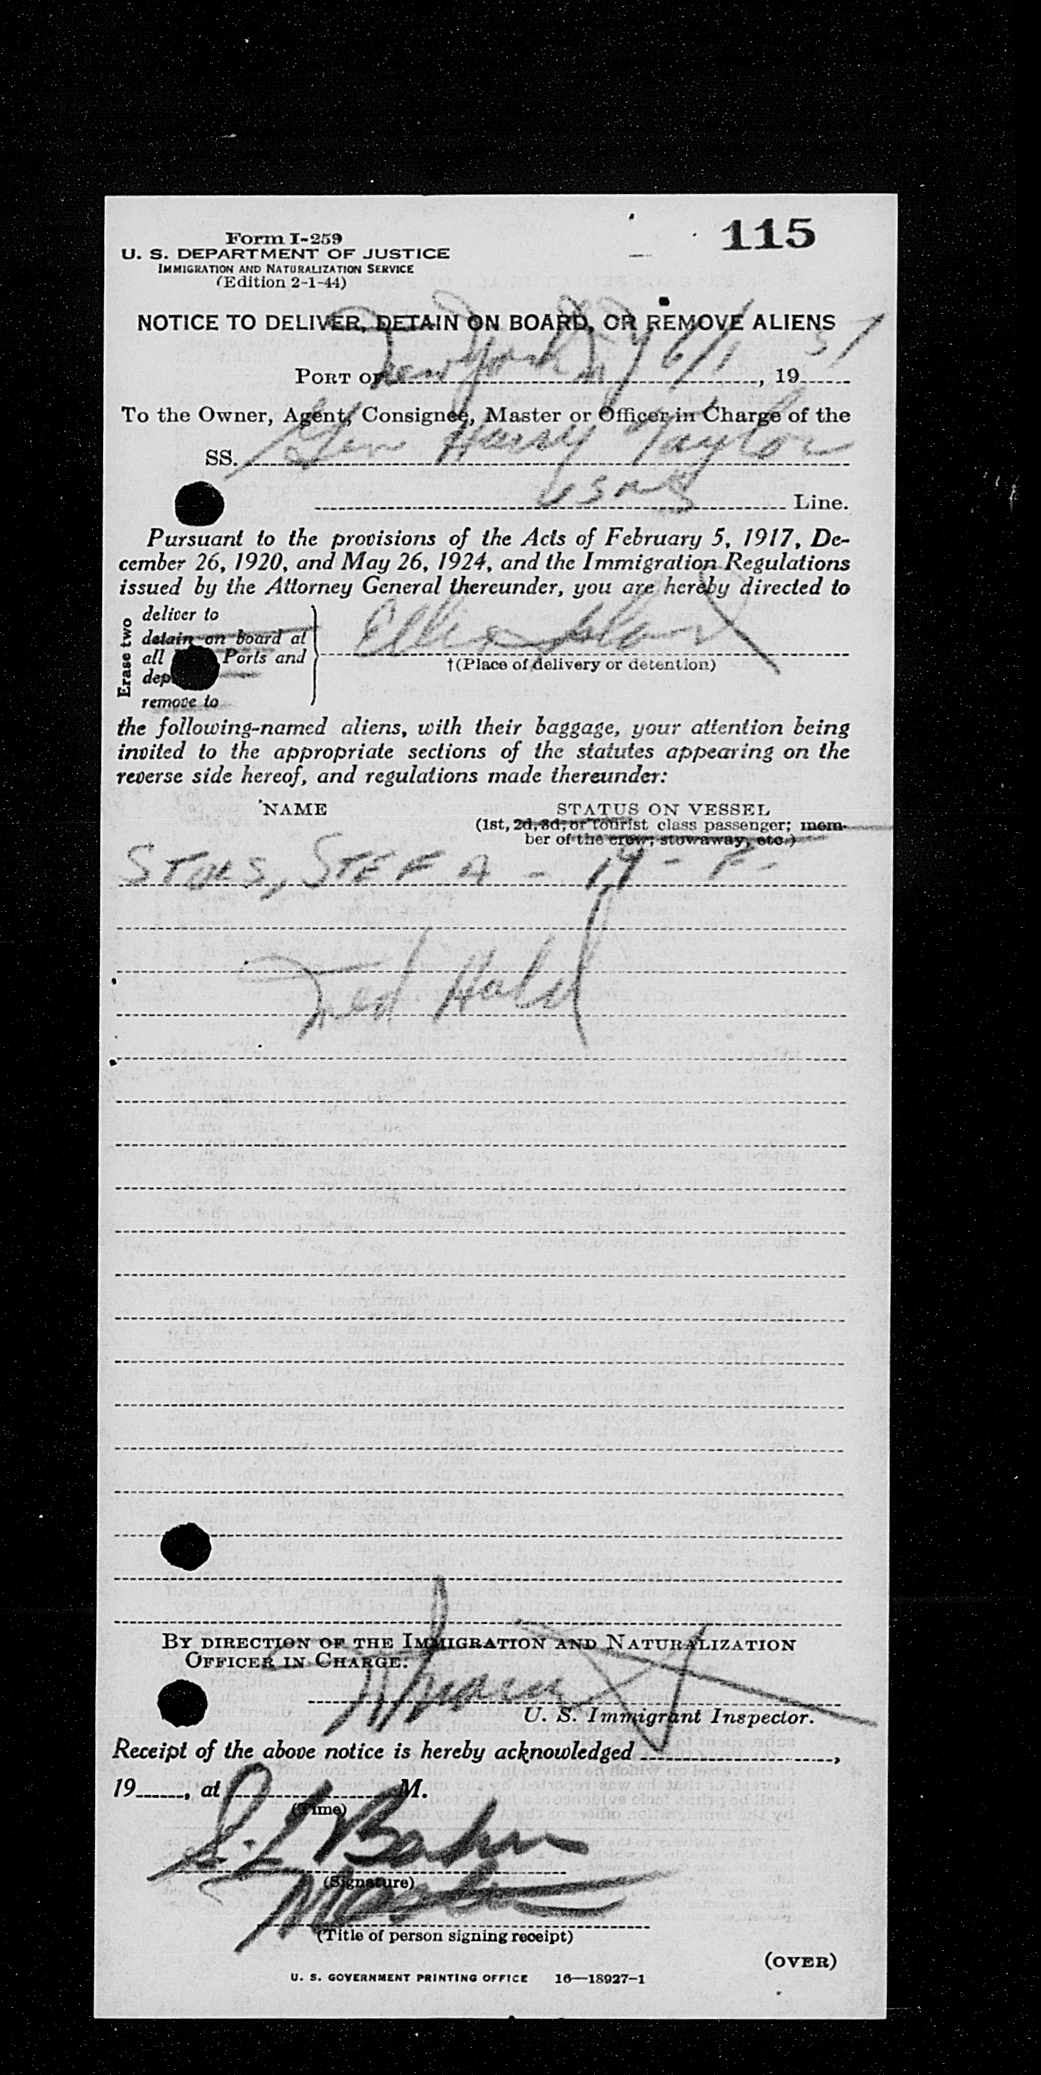 Form I-259
115
U. S. DEPARTMENT OF JUSTICE
IMMIGRATION AND NATURALIZATION SERVICE
(Edition 2-1-44)
NOTICE TO DELIVER, DETAIN ON BOARD, OR REMOVE ALIENS
PORT OF New York N Y 6/1, 1951
To the Owner, Agent, Consignee, Master or Officer in Charge of the
SS. Gen Harry Taylor
USNS Line.
Pursuant to the provisions of the Acts of February 5, 1917, De-
cember 26, 1920, and May 26, 1924, and the Immigration Regulations
issued by the Attorney General thereunder, you are hereby directed to
Erase two
deliver to
detain on board at
all Ports and
dep
remove to
Ellis Island
†(Place of delivery or detention)
the following-named aliens, with their baggage, your attention being
invited to the appropriate sections of the statutes appearing on the
reverse side hereof, and regulations made thereunder:
NAME
STATUS ON VESSEL
(1st, 2d, 3d, or Tourist class passenger; mem-
ber of the crew; stowaway, etc.)
STEFA - 19 - F -
Med Hold
BY DIRECTION OF THE IMMIGRATION AND NATURALIZATION
OFFICER IN CHARGE:
U. S. Immigrant Inspector.
Receipt of the above notice is hereby acknowledged ,
19 , at M.
(Time)
(Signature)
Master
(Title of person signing receipt)
(OVER)
U. S. GOVERNMENT PRINTING OFFICE 16—18927-1